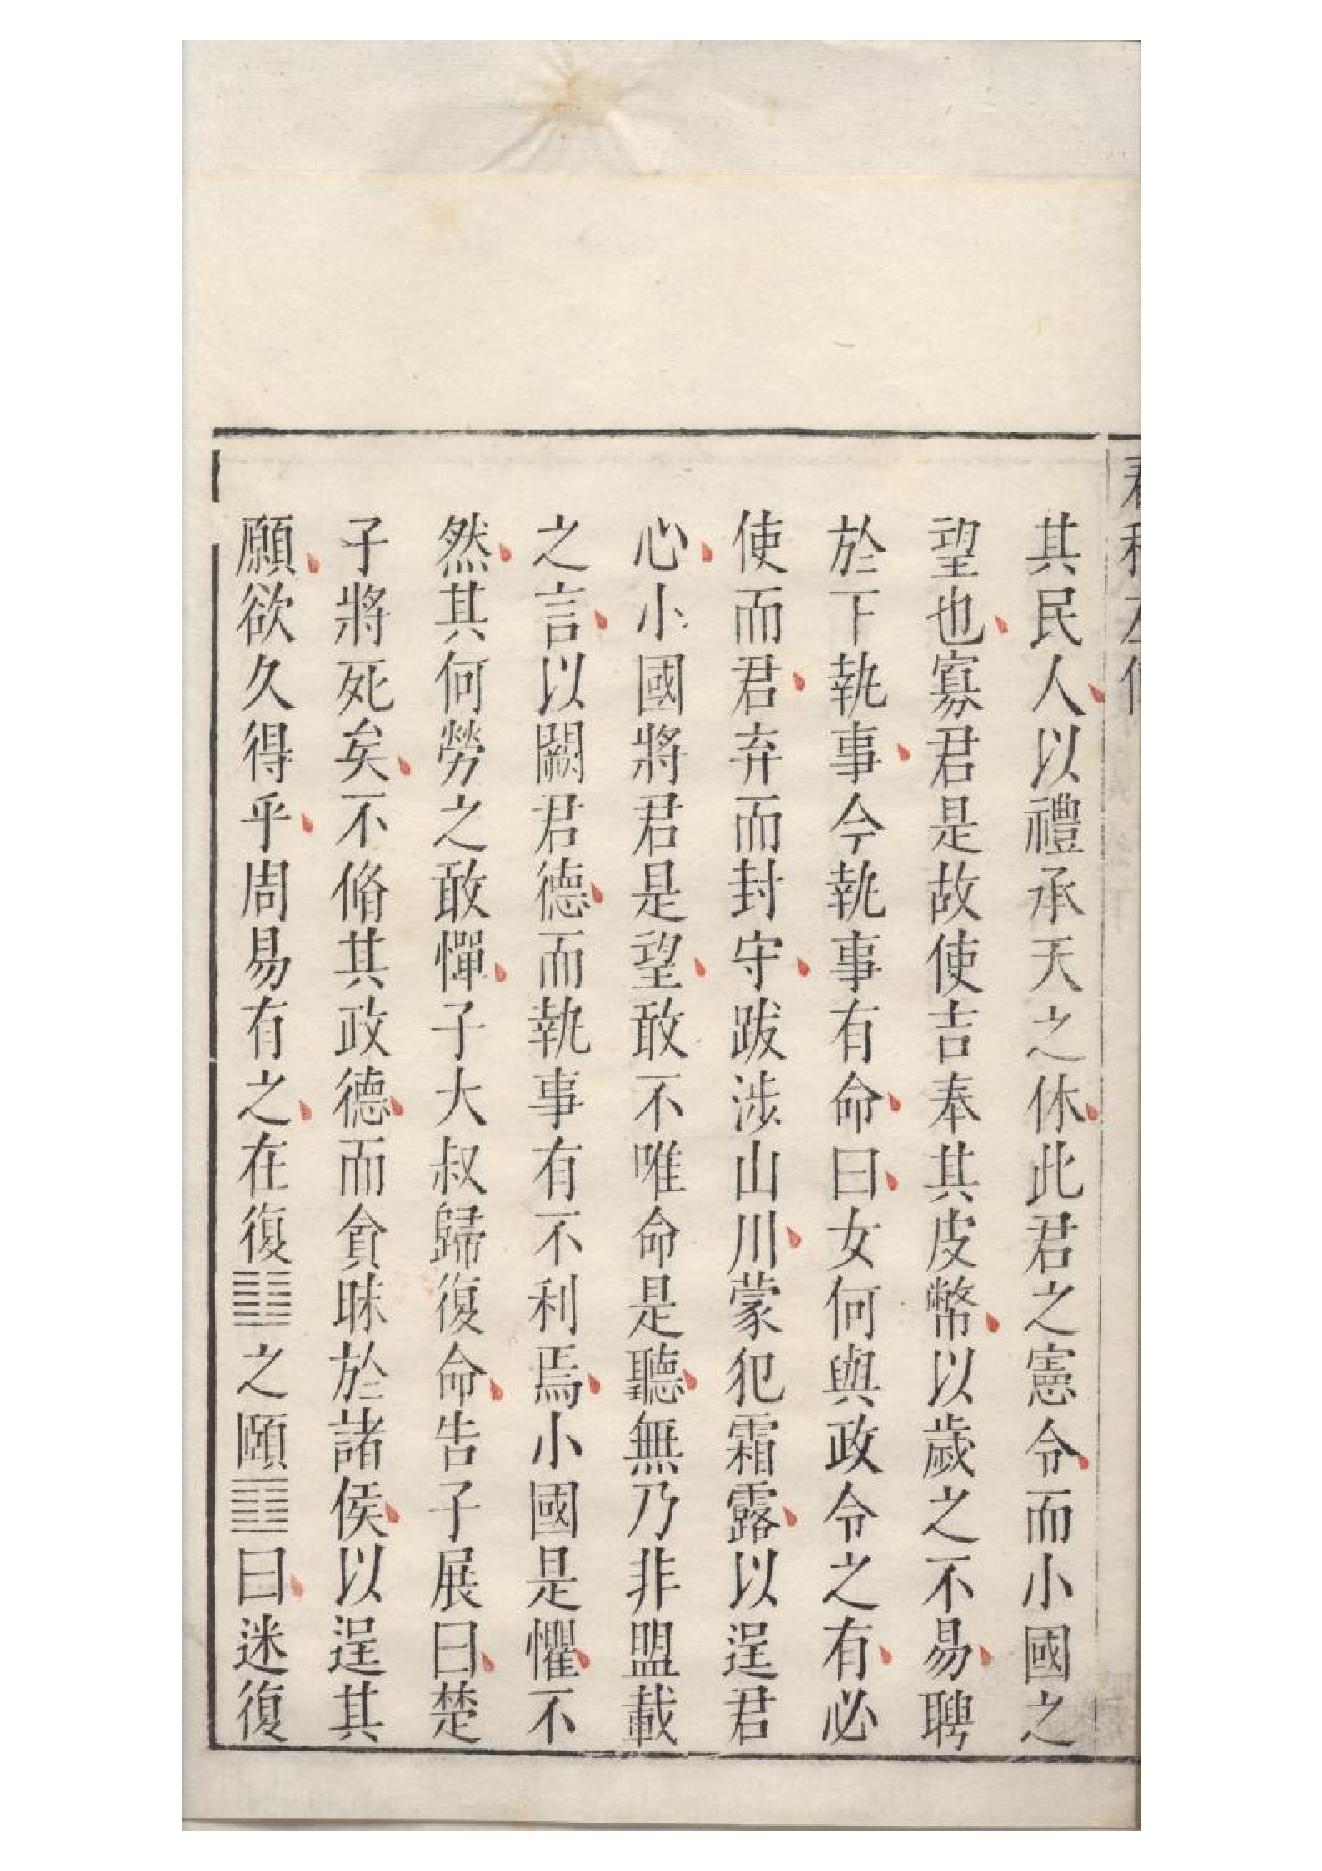 春秋左傳
其民人以禮承天之休此君之憲令而小國之
望也寡君是故使吉奉其皮幣以歲之不易聘
於下執事今執事有命曰女何與政令之有必
使而君弃而封守跋涉山川蒙犯霜露以逞君
心小國將君是望敢不唯命是聽無乃非盟載
之言以闕君德而執事有不利焉小國是懼不
然其何勞之敢憚子大叔歸復命告子展曰楚
子將死矣不脩其政德而貪昧於諸侯以逞其
願欲久得乎周易有之在復䷗之頤䷚曰迷復